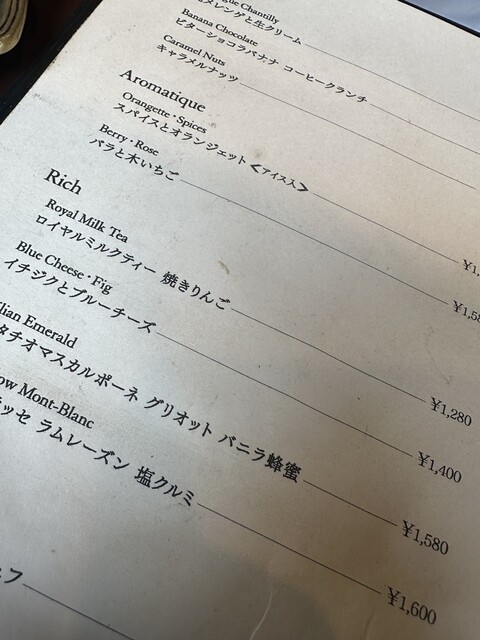 Chantilly
メレンゲと生クリーム
Banana Chocolate
ビターショコラバナナ コーヒークランチ
Caramel Nuts
キャラメルナッツ
Aromatique
Orangette・Spices
スパイスとオランジェット <アイス入> ¥1,
Berry・Rose
バラと木いちご ¥1,58
Rich
Royal Milk Tea
ロイヤルミルクティー 焼きりんご ¥1,280
Blue Cheese・Fig
イチジクとブルーチーズ ¥1,400
lian Emerald
タチオマスカルポーネ グリオット バニラ蜂蜜 ¥1,580
ow Mont-Blanc
ラッセ ラムレーズン 塩クルミ ¥1,600
フ